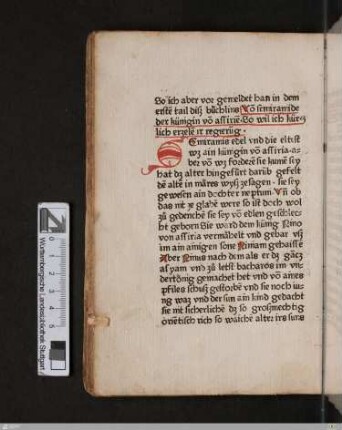 So ich aber vor gemeldet han in dem
ersten tail diß büchlins Võ semiramide
der küngin võ assirie. So wil ich kürcz
lich erzelē ir regierūg.
Semiramis edel vnd die eltist
wz ain küngin võ assiria. a-
ber võ wz fordrē sie kumē sey
hat dz alter hingefürt darüb gefelt
dē altē in märes wyß zesagen. sie sey
gewesen ain dochter neptuni. Vñ ob
das nit ze globē were so ist doch wol
zů gedenchē sie sey võ edlen geschlec-
ht geborn Sie ward dem küng Nino
von assiria vermähelt vnd gebar im
im ain ainigen sone Niniam gehaissē
Aber Ninus nach dem als er dz gācz
asyam vnd zů letst bactros im vn-
dertönig gemachet het vnd võ aines
pfiles schusz gestorbē vnd sie noch iu-
ng waz vnd der sun ain kind gedacht
sie nit sicherliche dz so groszmechtig
orientisch rich so waiche alter irs suns
Württembergische Landesbibliothek Stuttgart
0 1 2 3 4 5